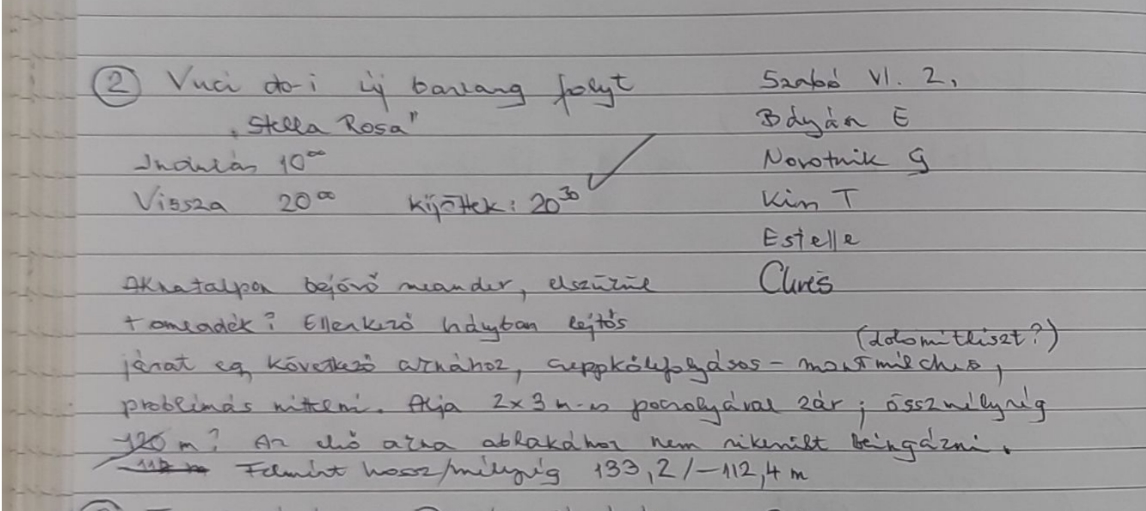 ② Vuci do-i új barlang folyt
"Stella Rosa"
Indulás 10⁰⁰
Vissza 20⁰⁰ Kijöttek: 20³⁰ ✓
Szabó Vl. 2,
Bdyán E
Novotnik G
Kim T
Estelle
Chris
Aknatalpon bejövő meander, elszűkül
+ omladék? Ellenkező irányban lejtős
járat egy következő aknához, cseppkőlefolyásos - montmilches, (dolomitliszt?)
problémás nittelni. Alja 2x3 m-es pocsolyával zár; összmélység
-120 m? Az első akna ablakához nem sikerült beingázni.
-112 m Felmért hossz/mélység 133,2/-112,4 m